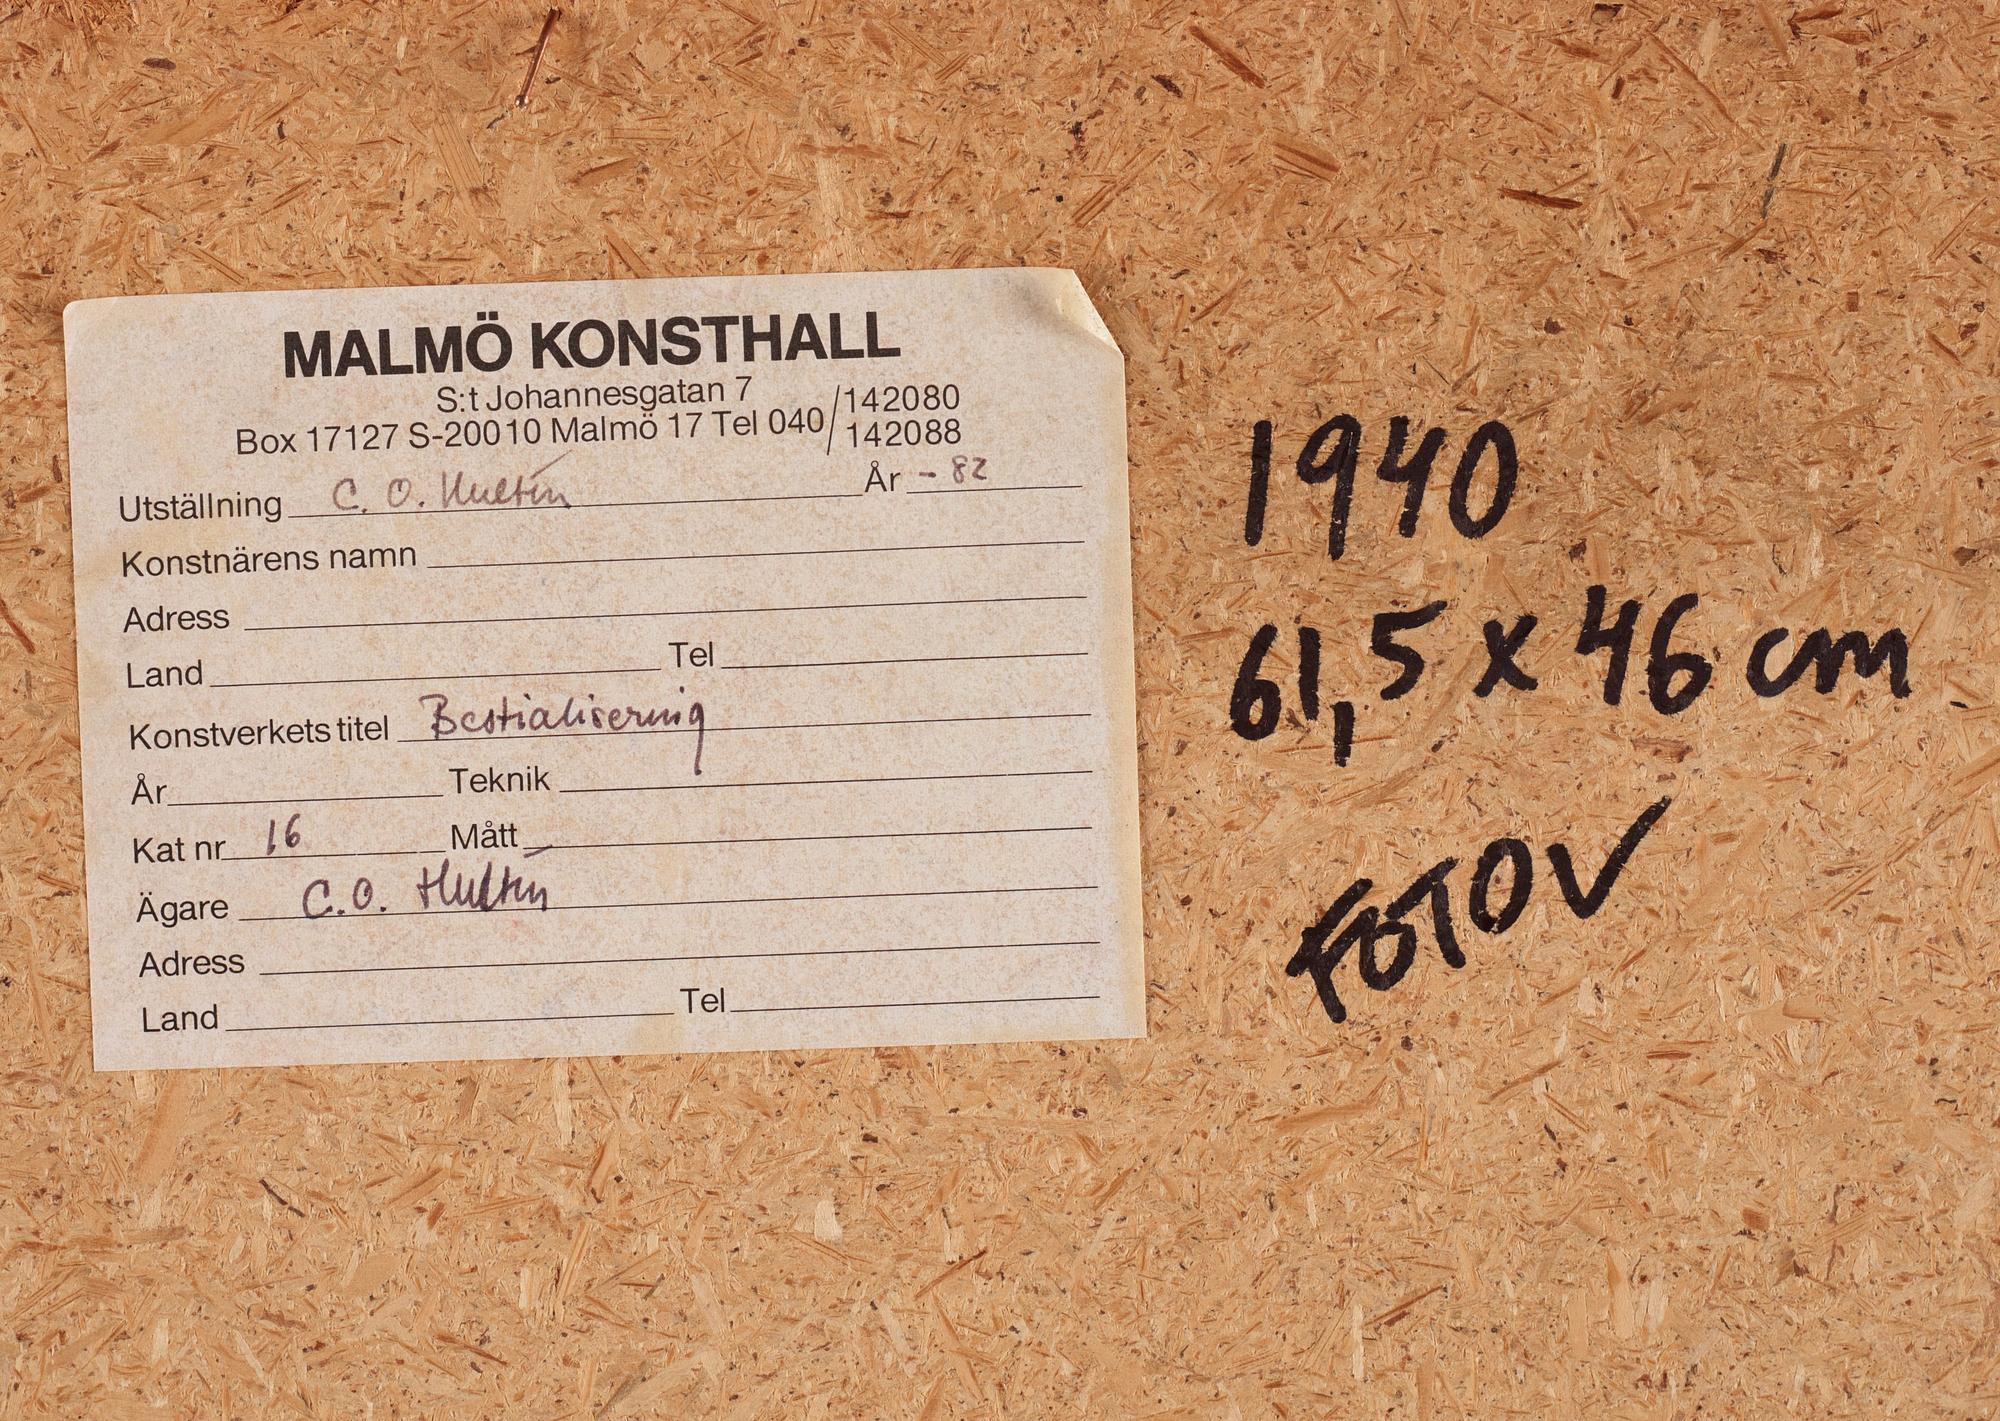 MALMÖ KONSTHALL
S:t Johannesgatan 7
Box 17127 S-200 10 Malmö 17 Tel 040/142080
142088
Utställning C. O. Hultén År - 82
Konstnärens namn
Adress
Land Tel
Konstverkets titel Bestialisering
År Teknik
Kat nr 16 Mått
Ägare C.O. Hultén
Adress
Land Tel
1940
61,5 x 46 cm
FOTO V